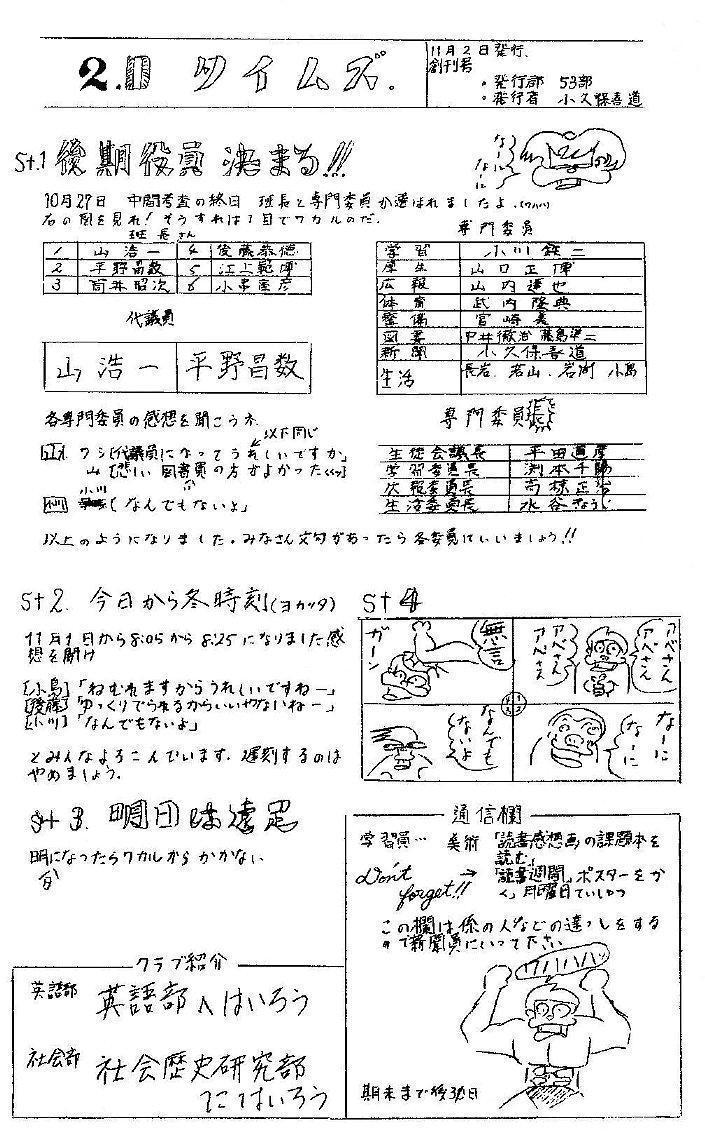 2.D タイムズ.
11月2日発行.
創刊号
・発行部 53部
・発行者 小久保喜道
St.1 後期役員 決まる!!!
なーに
なーに
10月27日 中間考査の終日 班長と専門委員が選ばれましたよ.(ワハハ)
右の図を見れ!そうすれば1目でワカルのだ.
班長さん
1 山 浩一 4 後藤恭徳
2 平野昌数 5 江上範博
3 筒井昭次 6 小串直彦
専門委員
学習 小川 鉄二
厚生 山口正博
広報 山内達也
体育 武内隆典
整備 宮崎 真
図書 中井徹治 藤島洋二
新聞 小久保喜道
生活 長岩、若山、岩渕 小島
代議員
山 浩一 平野昌数
各専門委員の感想を聞こうネ.
以下同じ
ワシ「代議員になってうれしいですか」
山「悲しい 図書員の方がよかった」
小川
「なんでもないよ」
専門委員長
生徒会議長 平田道彦
学習委員長 渕本千陽
広報委員長 高椋正治
生活委員長 水谷
以上のようになりました.みなさん文句があったら各委員にいいましょう!!
St 2. 今日から冬時刻(ヨカッタ)
11月1日から8:05から8:25になりました感
想を聞け
[小島]「ねむれますからうれしいですねー」
[後藤]「ゆっくりでられるからいいやないねー」
[小川]「なんでもないよ」
とみんなよろこんでいます.遅刻するのは
やめましょう.
St 4
アベさん
アベさん
アベさん
無言
ガーン
なーに
なーに
なんでも
ないよ
St 3. 明日は遠足
明日になったらワカルから かかない
分
通信欄
学習員… 美術 「読書感想画」の課題本を
読む」
Don't forget!! → 「読書週間」ポスターをか
く」月曜日ていしゅつ
この欄は係の人などの達っしをする
ので新聞員にいって下さい
期末まで後30日
クラブ紹介
英語部 英語部へはいろう
社会部 社会歴史研究部
にはいろう